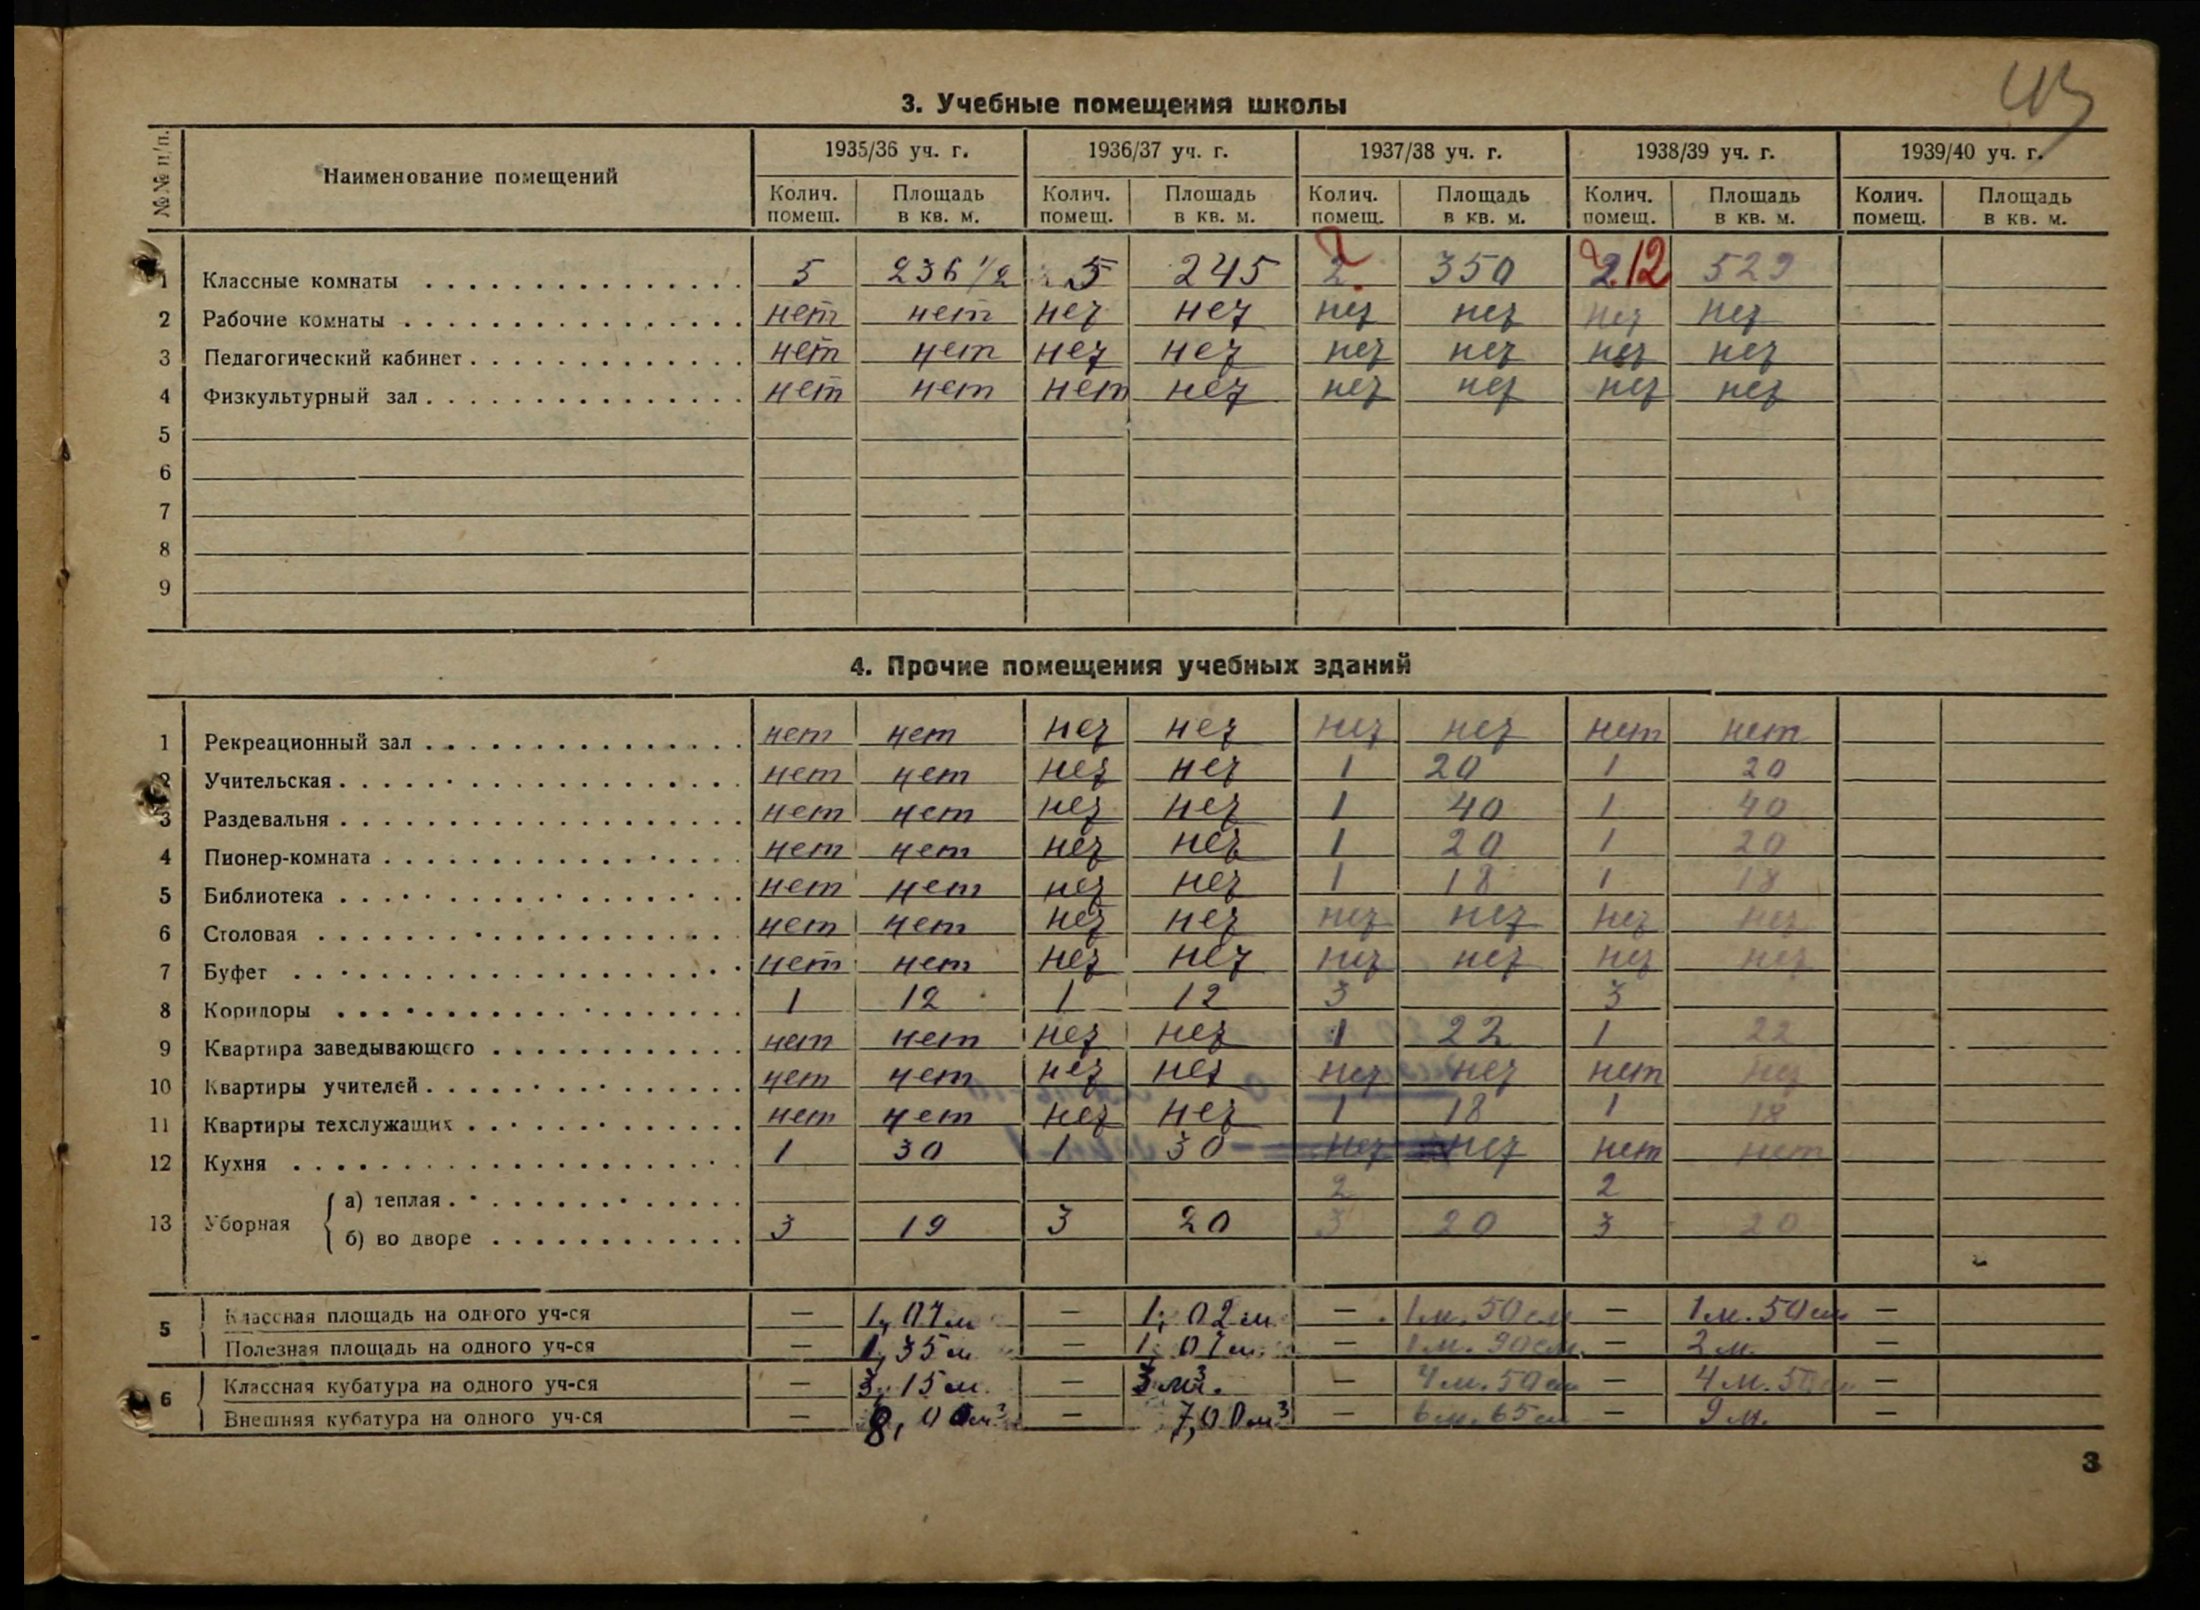 43
3. Учебные помещения школы
№№ п/п. Наименование помещений 1935/36 уч. г. 1936/37 уч. г. 1937/38 уч. г. 1938/39 уч. г. 1939/40 уч. г.
Колич. Площадь Колич. Площадь Колич. Площадь Колич. Площадь Колич. Площадь
помещ. в кв. м. помещ. в кв. м. помещ. в кв. м. помещ. в кв. м. помещ. в кв. м.
1 Классные комнаты 5 236 1/2 5 245 2 350 2 12 529
2 Рабочие комнаты нет нет нет нет нет нет нет нет
3 Педагогический кабинет нет нет нет нет нет нет нет нет
4 Физкультурный зал нет нет нет нет нет нет нет нет
5
6
7
8
9
4. Прочие помещения учебных зданий
1 Рекреационный зал нет нет нет нет нет нет нет нет
2 Учительская нет нет нет нет 1 20 1 20
3 Раздевальня нет нет нет нет 1 40 1 40
4 Пионер-комната нет нет нет нет 1 20 1 20
5 Библиотека нет нет нет нет 1 18 1 18
6 Столовая нет нет нет нет нет нет нет нет
7 Буфет нет нет нет нет нет нет нет нет
8 Коридоры 1 12 1 12 3 3
9 Квартира заведывающего нет нет нет нет 1 22 1 22
10 Квартиры учителей нет нет нет нет нет нет нет нет
11 Квартиры техслужащих нет нет нет нет 1 18 1 18
12 Кухня 1 30 1 30 нет нет нет нет
13 Уборная а) теплая 2 2
б) во дворе 3 19 3 20 3 20 3 20
5 Классная площадь на одного уч-ся — 1,07м — 1,02м — 1м.50см — 1м.50см —
Полезная площадь на одного уч-ся — 1,35м — 1,07м — 1м.90см — 2м. —
6 Классная кубатура на одного уч-ся — 3,15м. — 3м³. — 4м.50см — 4м.50см —
Внешняя кубатура на одного уч-ся — 8,00м³ — 7,00м³ — 6м.65см — 9м. —
3